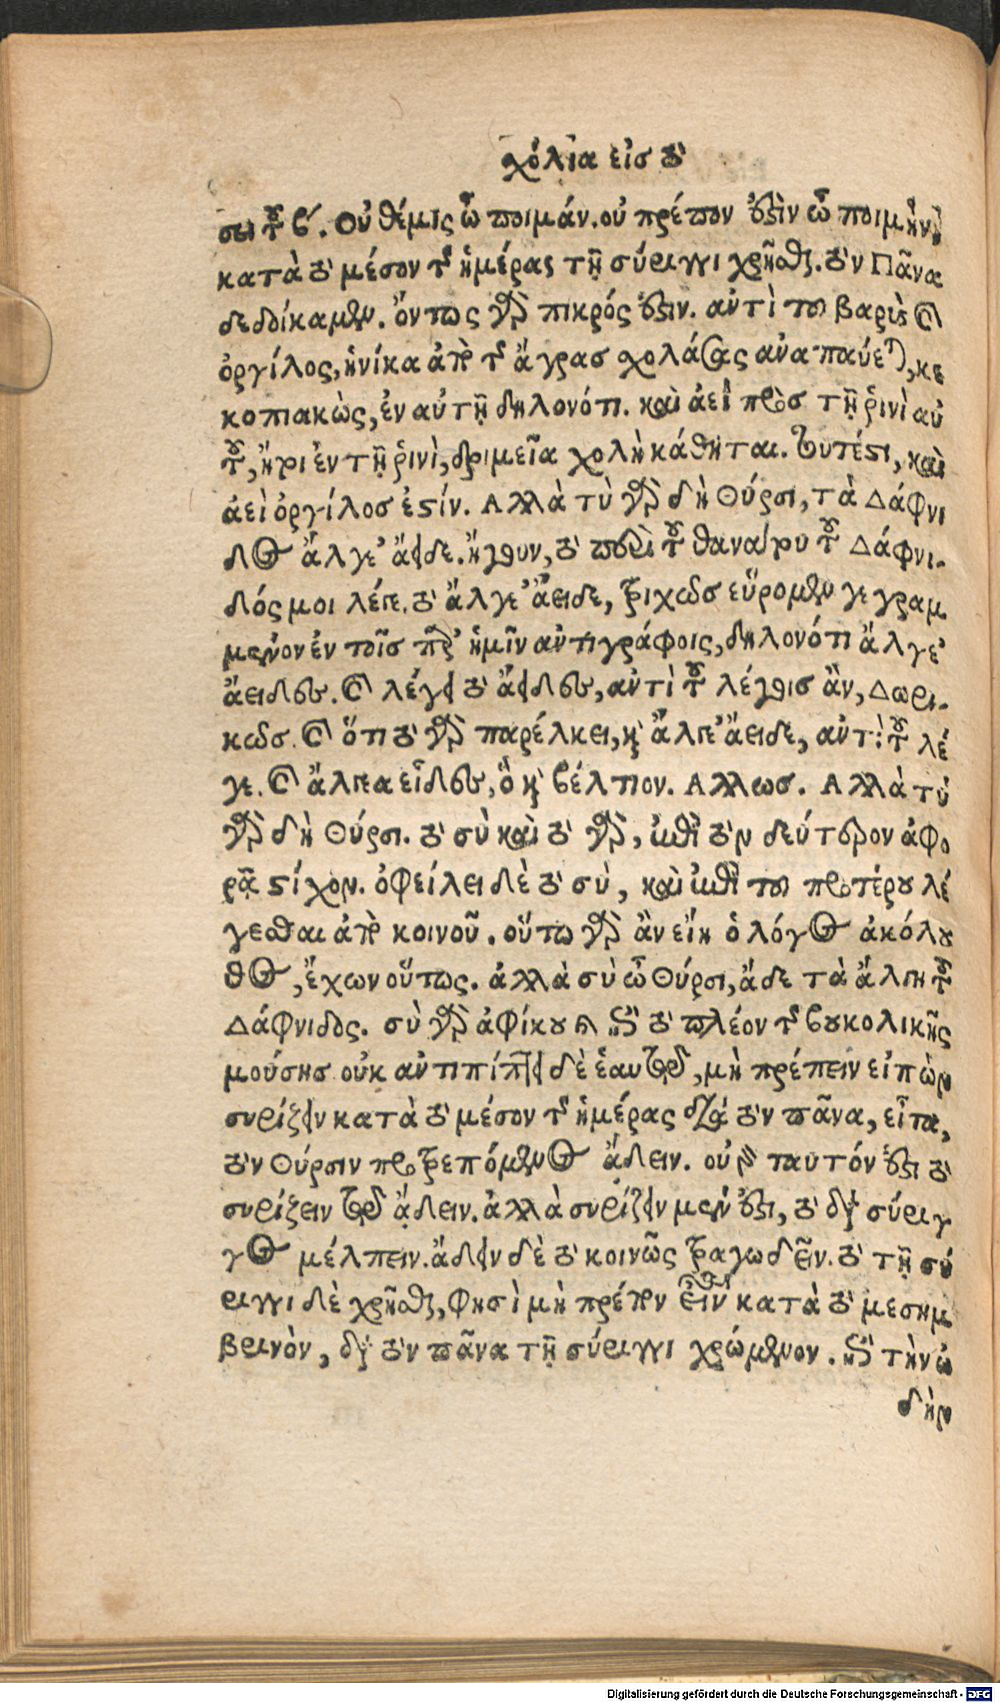 σχόλια εἰς τὸ
σει τοῦ β. Οὐ θέμις ὦ ποιμάν. οὐ πρέπον ἐστὶν ὦ ποιμὴν,
κατὰ τὸ μέσον τῆς ἡμέρας τῇ σύριγγι χρῆσθαι. τὸν Πᾶνα
δεδοίκαμεν. ὄντως γὰρ πικρός ἐστιν. αντὶ του βαρὺς καὶ
ὀργίλος, ἡνίκα ἀπὸ τῆς ἄγρας σχολάσας αναπαύεται, κε
κοπιακὼς, ἐν αὐτῇ δηλονότι. καὶ ἀεὶ πρὸς τῇ ῥινὶ αὐ
τοῦ, ἤτοι ἐν τῇ ῥινὶ, δριμεῖα χολὴ κάθηται. τουτέστι, καὶ
ἀεὶ ὀργίλος ἐστίν. Αλλὰ τὺ γὰρ δὴ Θύρσι, τὰ Δάφνι
δος ἄλγε' ἄειδε. ἤγουν, τὸ περὶ τοῦ θανάτου τοῦ Δάφνι-
δός μοι λέγε. τὸ ἄλγε' ἄειδε, τριχῶς εὕρομεν γεγραμ
μένον ἐν τοῖς παρ' ἡμῖν αντιγράφοις, δηλονότι ἄλγε'
ἄειδες. καὶ λέγει τὸ ἄειδες, αντὶ τοῦ λέγοις ἂν, Δωρι-
κῶς. καὶ ὅτι τὸ γὰρ παρέλκει, καὶ ἄλγε' ἄειδε, αντὶ τοῦ λέ
γε. καὶ ἄλγεα εἶδες, ὃ καὶ βέλτιον. Αλλως. Αλλὰ τὺ
γὰρ δὴ Θύρσι. τὸ σὺ καὶ τὸ γὰρ, ἐπὶ τὸν δεύτερον ἀφο
ρᾷ στίχον. ὀφείλει δὲ τὸ σὺ, καὶ ἐπὶ του προτέρου λέ
γεσθαι ἀπὸ κοινοῦ. οὕτω γὰρ ἂν εἴη ὁ λόγος ἀκόλου
θος, ἔχων οὕτως. ἀλλὰ σὺ ὦ Θύρσι, ἄδε τὰ ἄλγη τοῦ
Δάφνιδος. σὺ γὰρ ἀφίκου ἐπὶ τὸ πλέον τῆς βουκολικῆς
μούσης. οὐκ αντιπίπτει δὲ ἑαυτῷ, μὴ πρέπειν εἰπὼν
συρίζειν κατὰ τὸ μέσον τῆς ἡμέρας διὰ τὸν πᾶνα, εἶτα,
τὸν Θύρσιν προτρεπόμενος ἄδειν. οὐ γὰρ ταυτόν ἐστι τὸ
συρίζειν τῷ ᾄδειν. ἀλλὰ συρίζειν μέν ἐστι, τὸ διὰ σύριγ
γος μέλπειν. ἄδειν δὲ τὸ κοινῶς τραγωδεῖν. τὸ τῇ σύ
ριγγι δὲ χρῆσθαι, φησὶ μὴ πρέπον εἶναι κατὰ τὸ μεσημ
βρινὸν, διὰ τὸν πᾶνα τῇ σύριγγι χρώμενον. ἐπὶ τὴν ὠ
δὴν